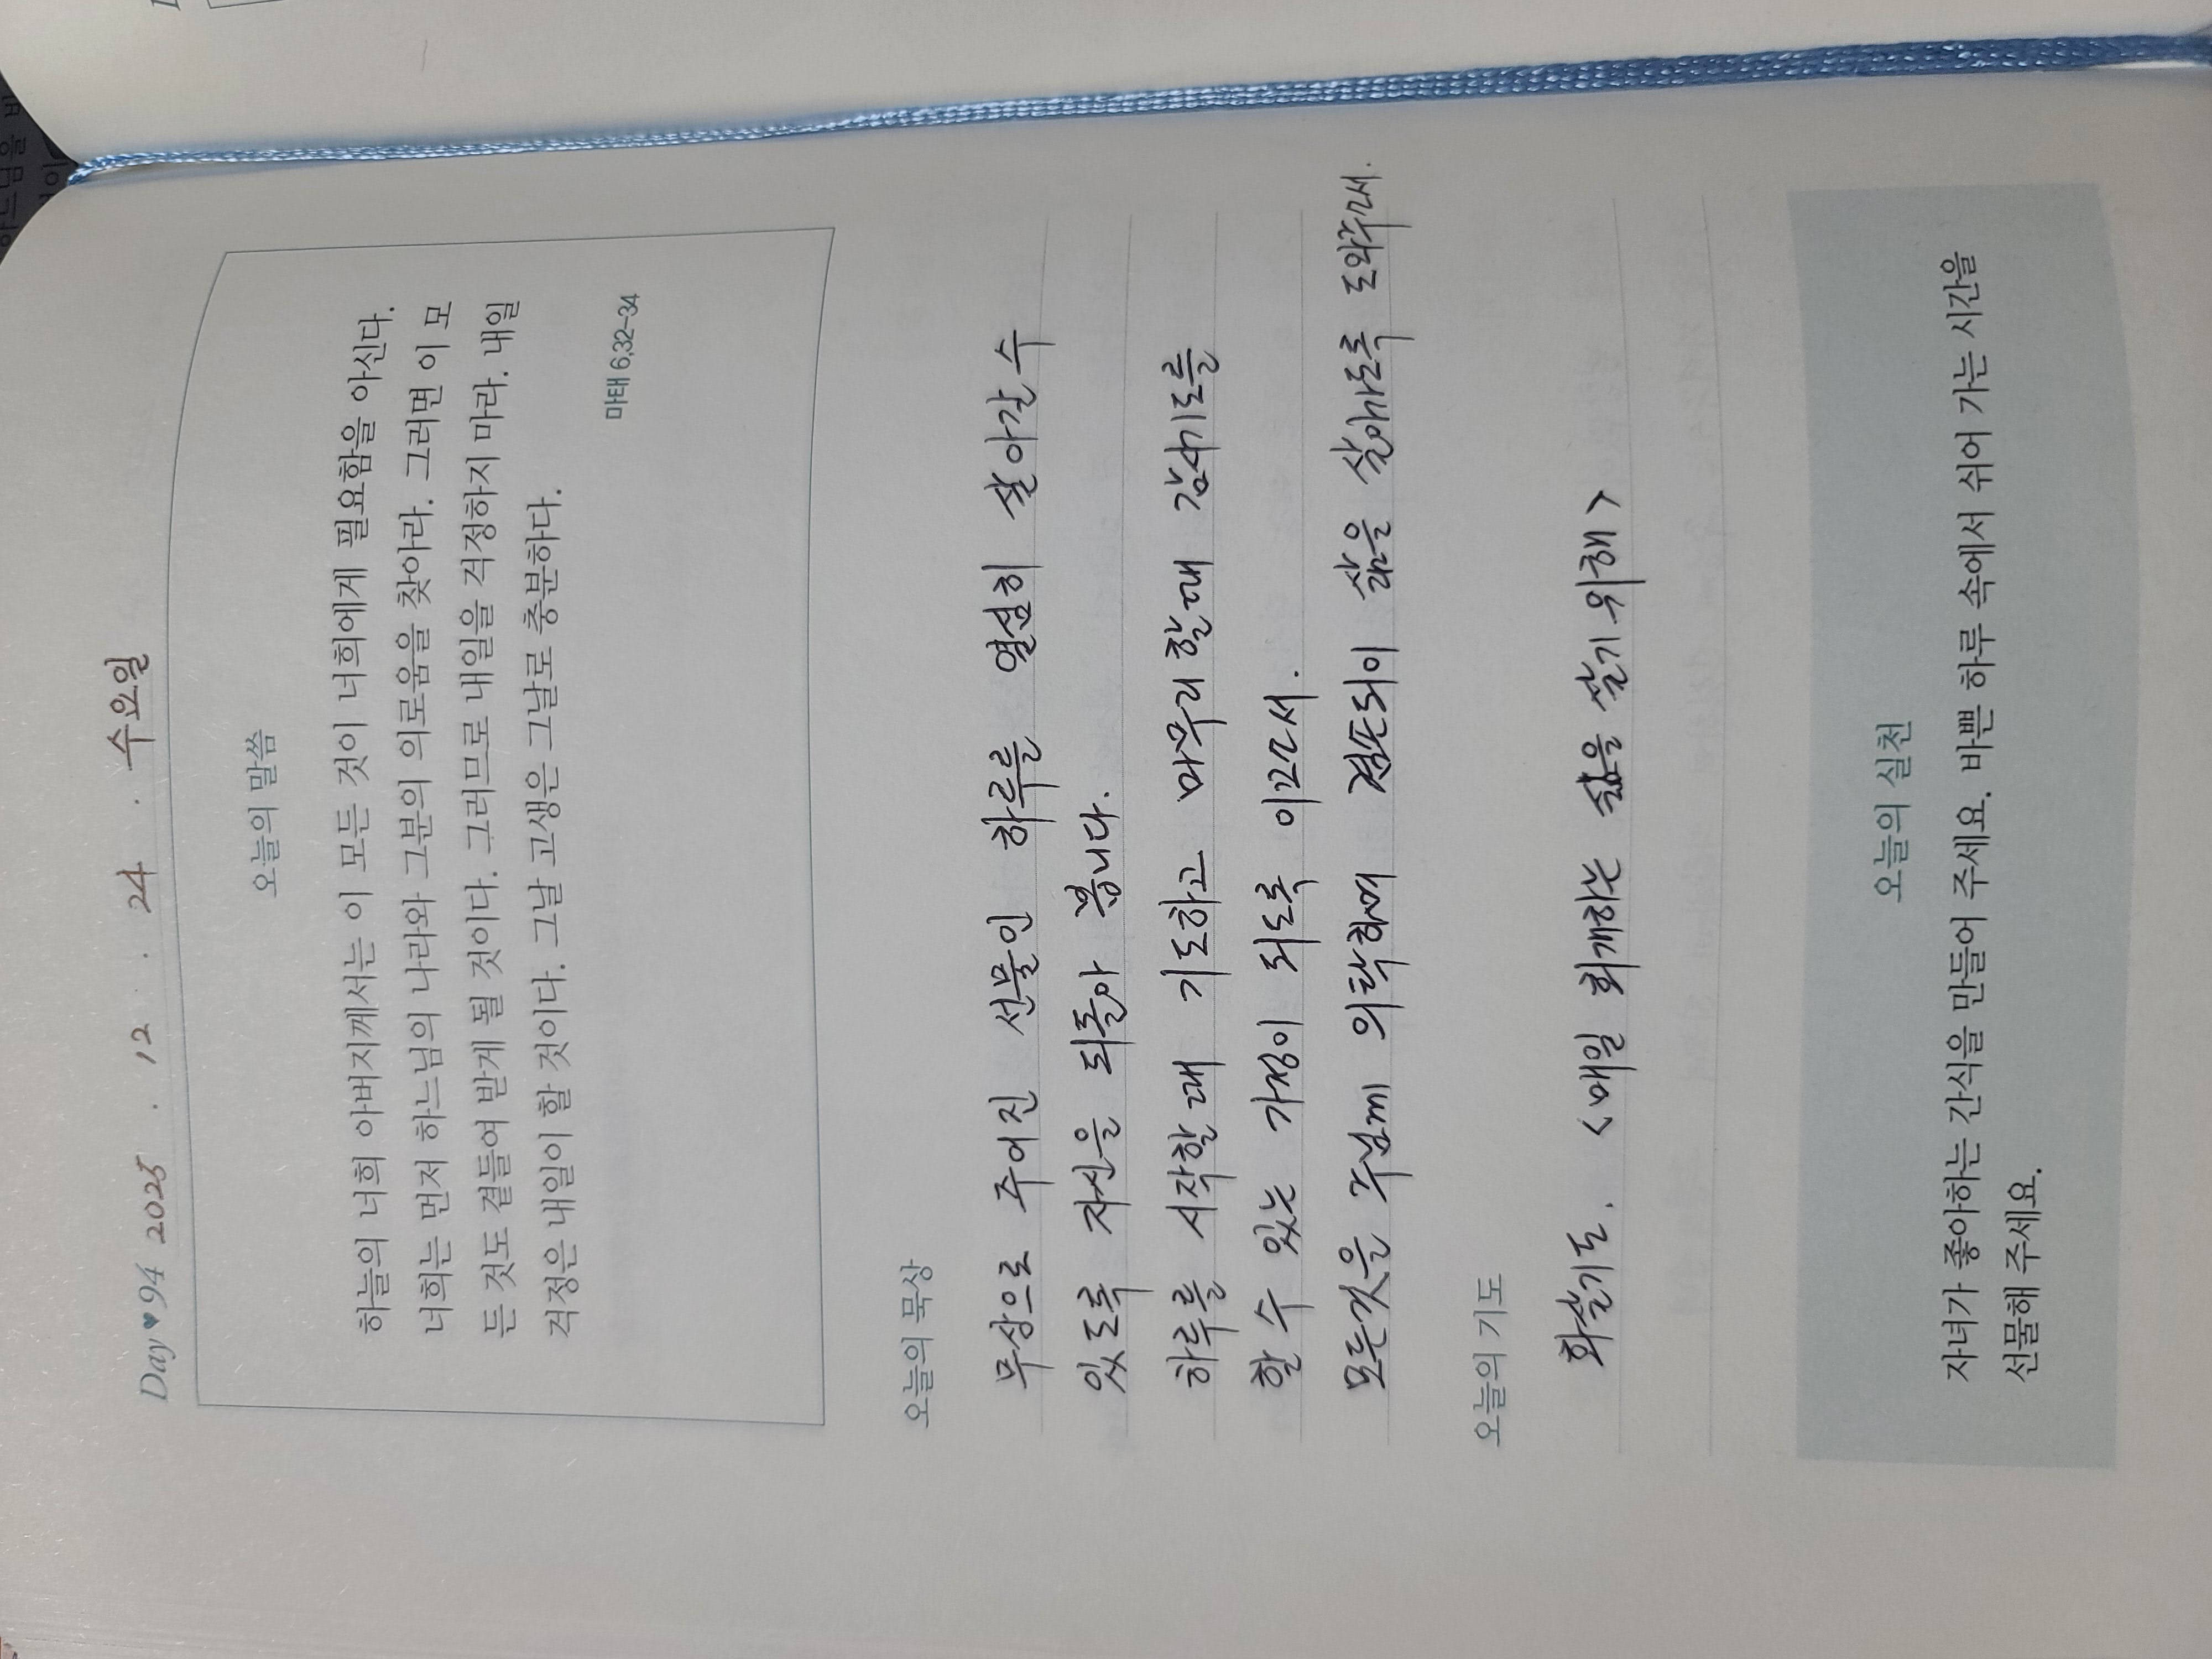 Day♥94 2025 . 12 . 24 . 수요일
오늘의 말씀
하늘의 너희 아버지께서는 이 모든 것이 너희에게 필요함을 아신다.
너희는 먼저 하느님의 나라와 그분의 의로움을 찾아라. 그러면 이 모
든 것도 곁들여 받게 될 것이다. 그러므로 내일을 걱정하지 마라. 내일
걱정은 내일이 할 것이다. 그날 고생은 그날로 충분하다.
마태 6,32-34
오늘의 묵상
무상으로 주어진 선물인 하루를 열심히 살아갈 수
있도록 자신을 되돌아 봅니다.
하루를 시작할때 기도하고 마무리할때 감사기도를
할 수 있는 가정이 되도록 이끄소서.
모든것을 주님께 의탁하며 겸손되이 삶을 살아가도록 도와주소서.
오늘의 기도
화살기도. <매일 회개하는 삶을 살기 위해>
오늘의 실천
자녀가 좋아하는 간식을 만들어 주세요. 바쁜 하루 속에서 쉬어 가는 시간을
선물해 주세요.